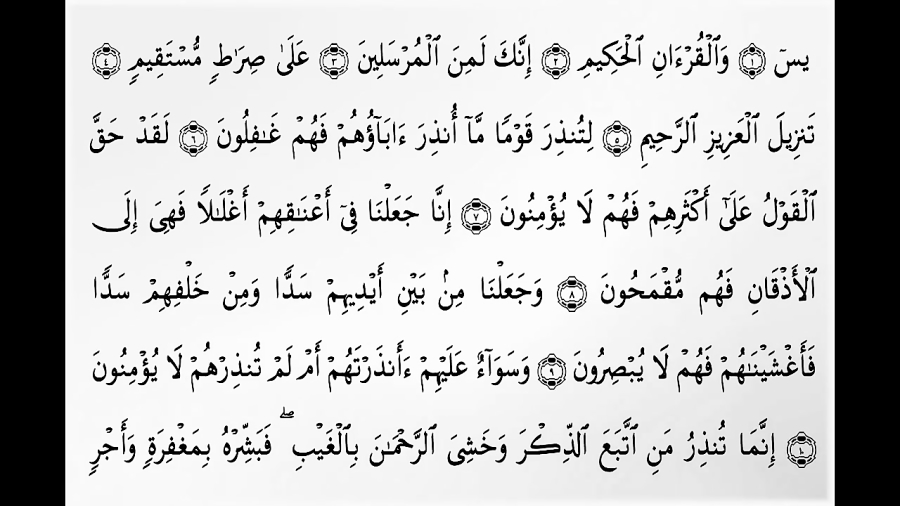 يسٓ ١ وَٱلْقُرْءَانِ ٱلْحَكِيمِ ٢ إِنَّكَ لَمِنَ ٱلْمُرْسَلِينَ ٣ عَلَىٰ صِرَٰطٍ مُّسْتَقِيمٍ ٤
تَنزِيلَ ٱلْعَزِيزِ ٱلرَّحِيمِ ٥ لِتُنذِرَ قَوْمًا مَّآ أُنذِرَ ءَابَآؤُهُمْ فَهُمْ غَٰفِلُونَ ٦ لَقَدْ حَقَّ
ٱلْقَوْلُ عَلَىٰٓ أَكْثَرِهِمْ فَهُمْ لَا يُؤْمِنُونَ ٧ إِنَّا جَعَلْنَا فِىٓ أَعْنَٰقِهِمْ أَغْلَٰلًا فَهِىَ إِلَى
ٱلْأَذْقَانِ فَهُم مُّقْمَحُونَ ٨ وَجَعَلْنَا مِنۢ بَيْنِ أَيْدِيهِمْ سَدًّا وَمِنْ خَلْفِهِمْ سَدًّا
فَأَغْشَيْنَٰهُمْ فَهُمْ لَا يُبْصِرُونَ ٩ وَسَوَآءٌ عَلَيْهِمْ ءَأَنذَرْتَهُمْ أَمْ لَمْ تُنذِرْهُمْ لَا يُؤْمِنُونَ
١٠ إِنَّمَا تُنذِرُ مَنِ ٱتَّبَعَ ٱلذِّكْرَ وَخَشِىَ ٱلرَّحْمَٰنَ بِٱلْغَيْبِ ۖ فَبَشِّرْهُ بِمَغْفِرَةٍ وَأَجْرٍ